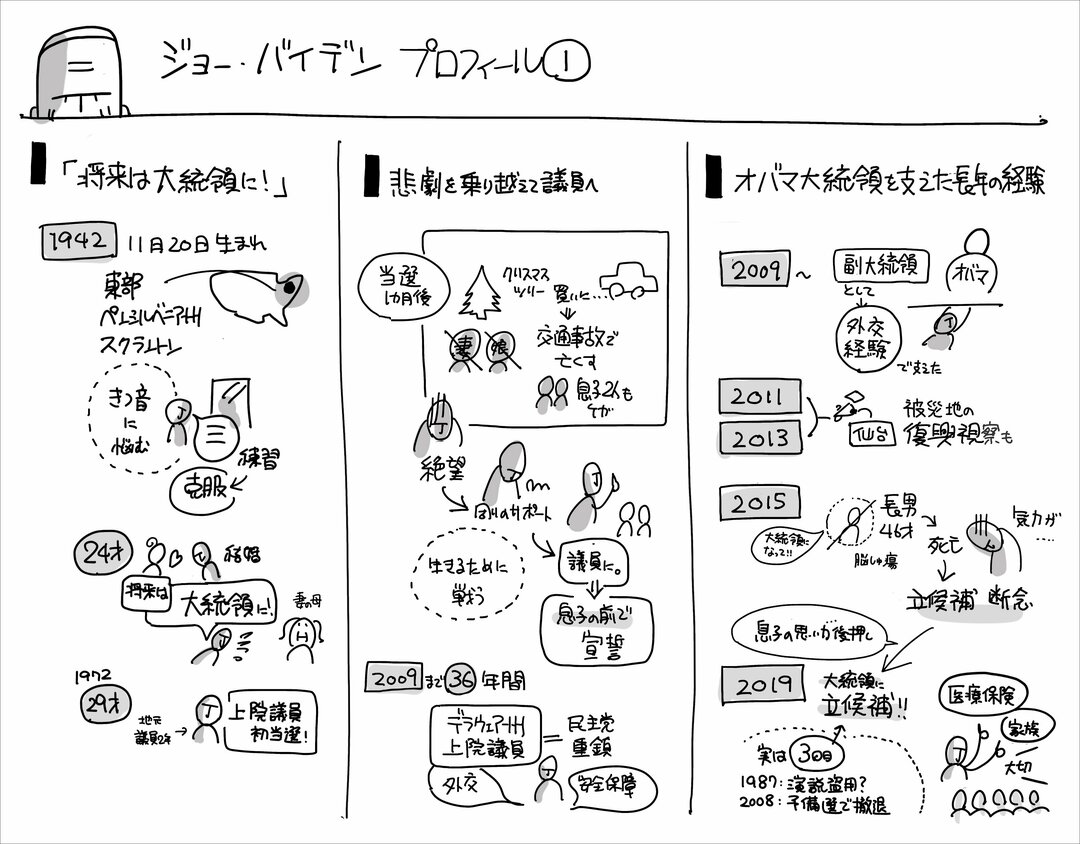 ジョー・バイデン プロフィール①
「将来は大統領に!」
1942 11月20日生まれ
東部
ペンシルベニア州
スクラントン
きつ音
に
悩む
J
練習
克服
24才
結婚
将来は
大統領に!
妻の母
J
H
1972
29才
地元
議員2年
J
上院議員
初当選!
悲劇を乗り越えて議員へ
当選
1カ月後
クリスマス
ツリー
買いに…
妻
娘
交通事故で
亡くす
息子2人も
ケガ
J
絶望
J
周りのサポート
J
生きるために
戦う
議員に。
息子の前で
宣誓
2009まで36年間
デラウェア州
上院議員
=
民主党
重鎮
外交
J
安全保障
オバマ大統領を支えた長年の経験
2009~
副大統領
として
オバマ
J
外交
経験
で支えた
2011
2013
仙台
被災地の
復興視察も
2015
大統領に
なって!!
長男
46才
脳しゅ瘍
死亡
気力が
立候補 断念
息子の思いが後押し
2019
大統領に
立候補!!
実は3回目
1987:演説盗用?
2008:予備選で撤退
医療保険
家族
大切
J